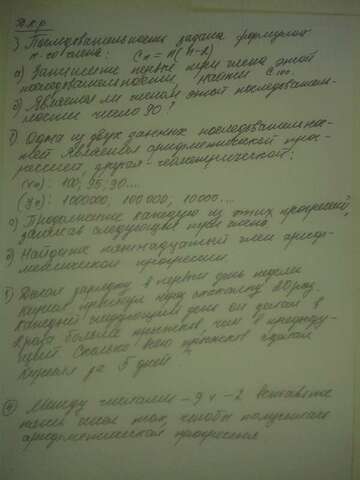 ) Последовательность задана формулой
n-го члена: Cn = n(n-2)
а) Запишите первые три члена этой
последовательности, найти C
б) Является ли членом этой последователь-
ности число 90?
Одна из двух данных последовательнос-
тей является арифметической прог-
рессией, другая геометрической:
(xn): 100; 95; 90....
(yn): 1000000, 100 000, 10000....
а) Продолжите каждую из этих прогрессий,
записав следующие три члена
Найдите пятнадцатый член арифме-
тической прогрессии
Делая зарядку в первый день недели
Кирилл прыгнул через скакалку 20 раз.
Каждый следующий день он делал в
раза больше прыжков, чем в предыду-
щий. Сколько всего прыжков сделал
Кирилл за 5 дней
Между числами -9 и -2 вставьте
чисел так, чтобы получилась
арифметическая прогрессия